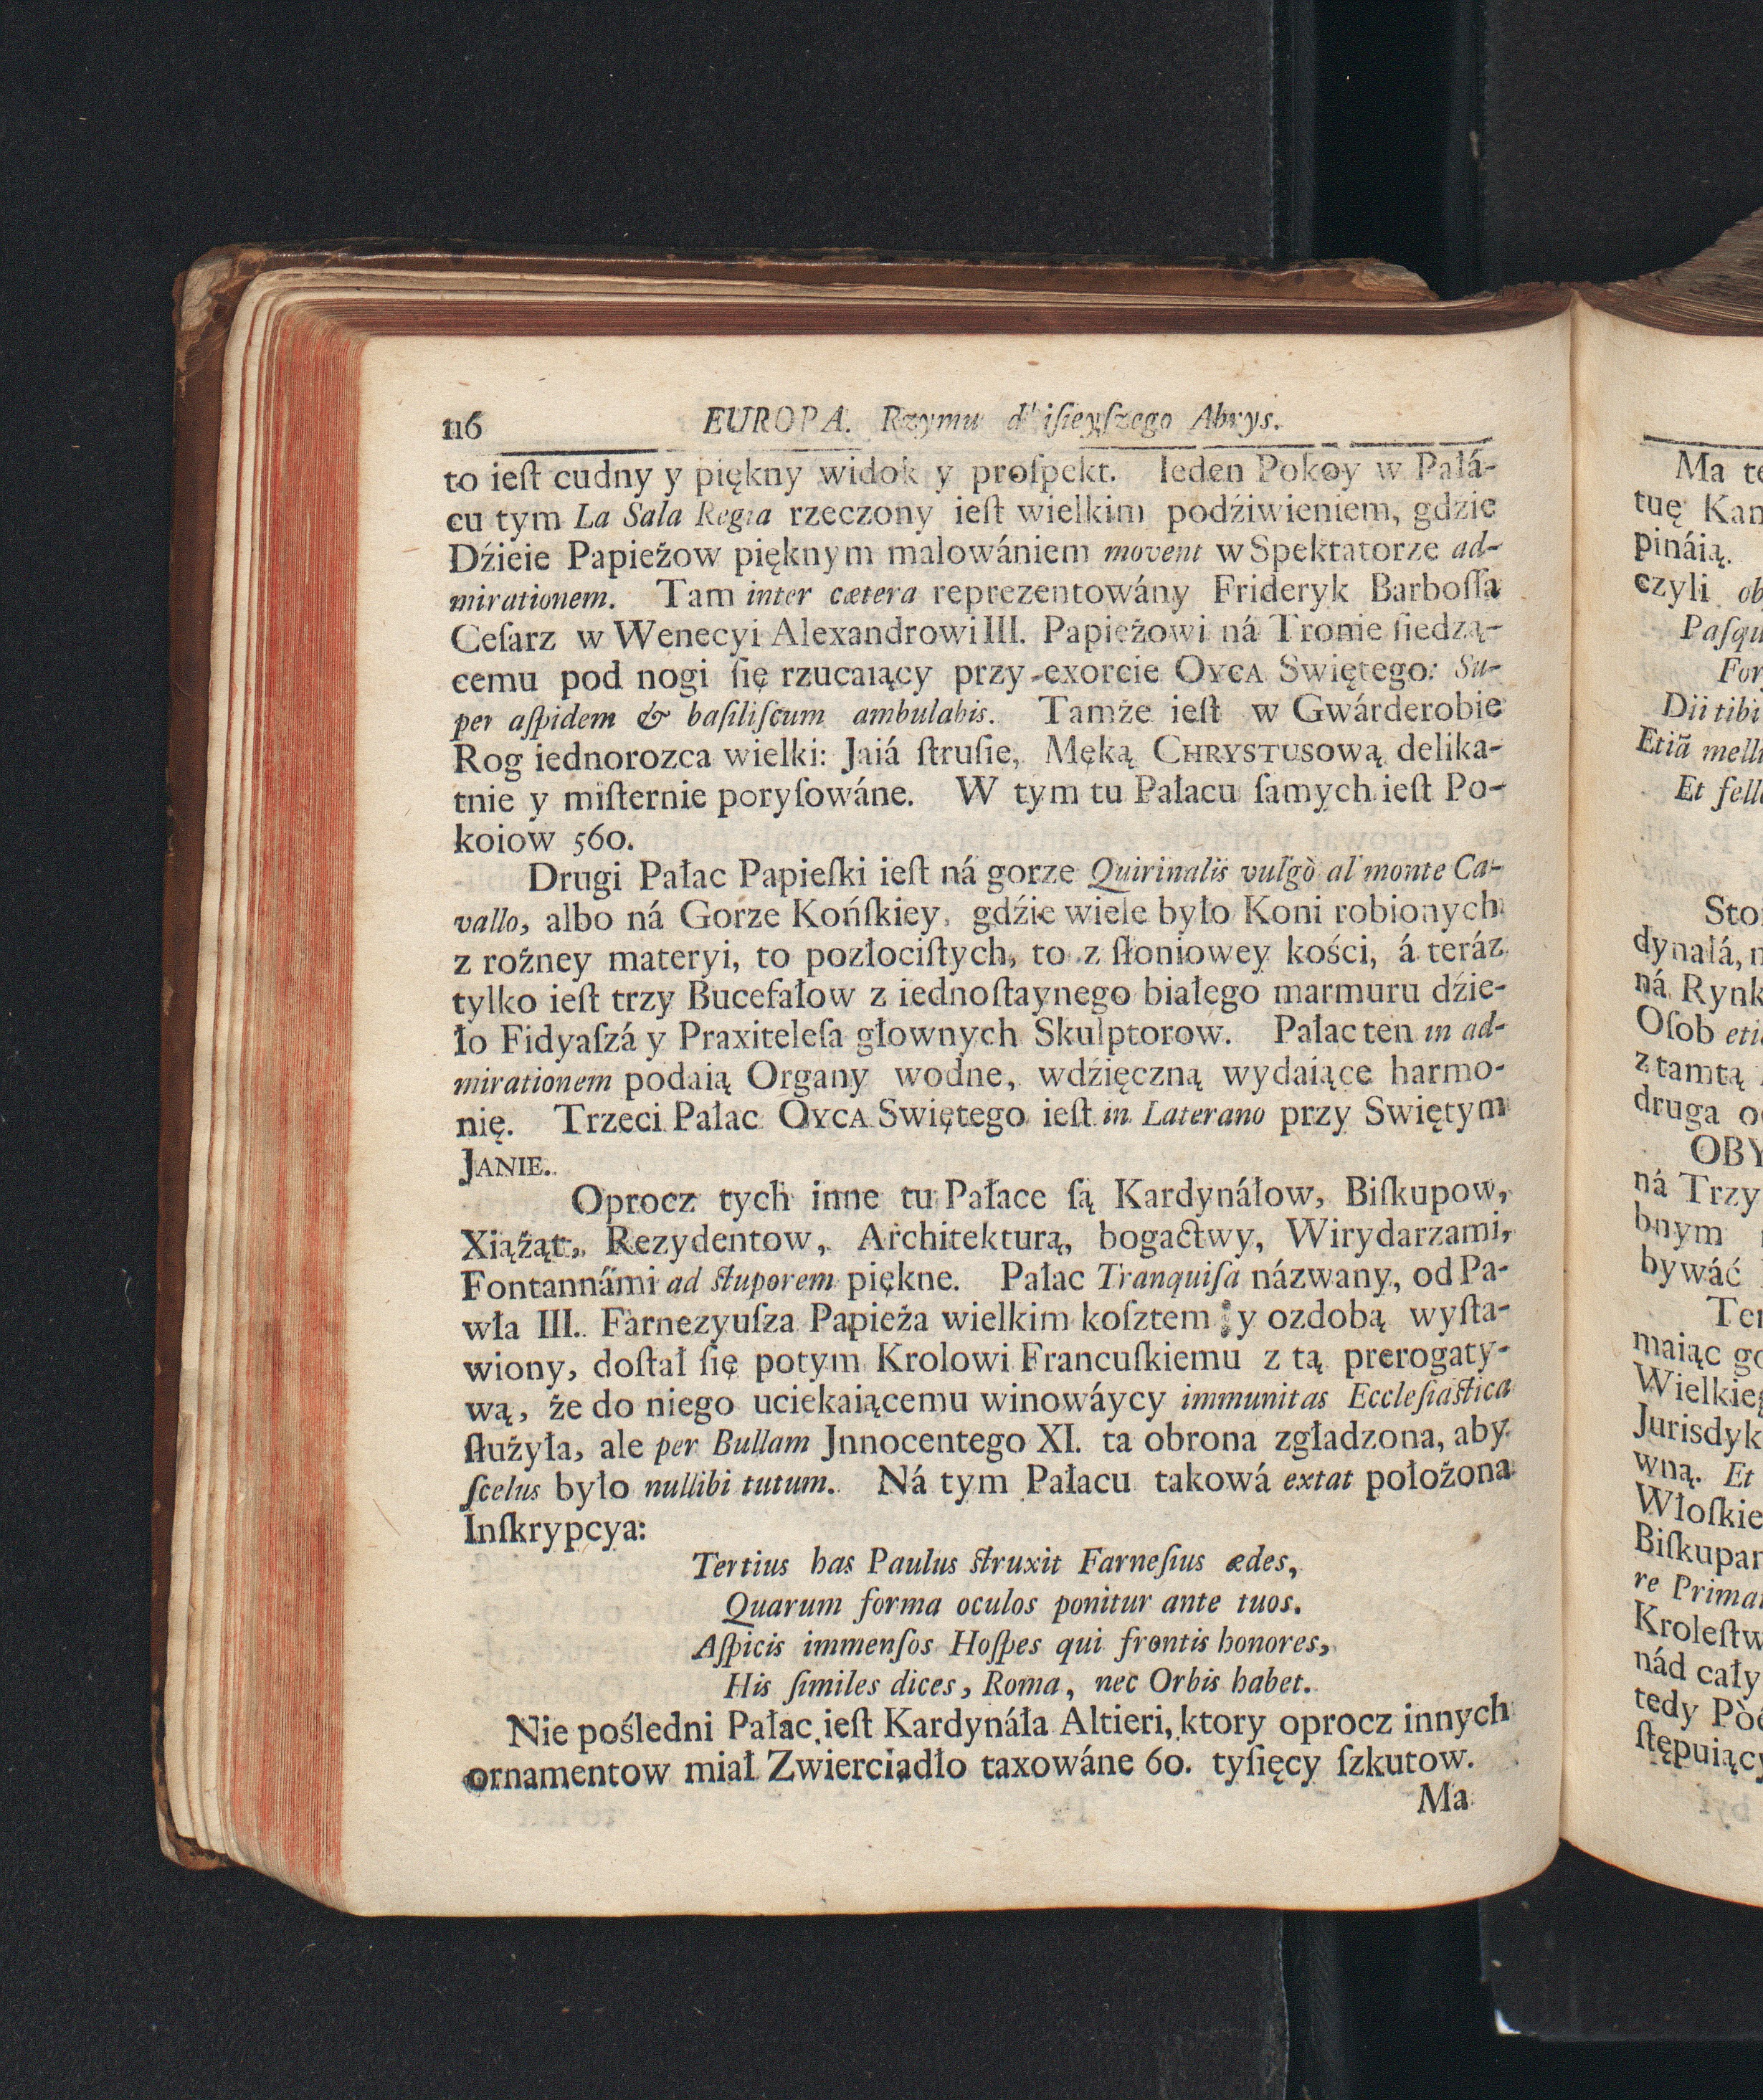 116 EUROPA. Rzymu d'isieyſzego Abrys.
to ieſt cudny y piękny widok y proſpekt. Ieden Pokoy w Pałá-
cu tym La Sala Regia rzeczony ieſt wielkim podźiwieniem, gdzie
Dźieie Papieżow pięknym malowániem movent w Spektatorze ad-
mirationem. Tam inter cætera reprezentowány Frideryk Barboſſa
Ceſarz w Wenecyi Alexandrowi III. Papieżowi ná Tronie ſiedzą-
cemu pod nogi ſię rzucaiący przy exorcie OYCA Swiętego: Su-
per aſpidem & baſiliſcum ambulabis. Tamże ieſt w Gwárderobie
Rog iednorozca wielki: Jaiá ſtruſie, Męką CHRYSTUSOWĄ delika-
tnie y miſternie poryſowáne. W tym tu Pałacu ſamych ieſt Po-
koiow 560.
Drugi Pałac Papieſki ieſt ná gorze Quirinalis vulgò al monte Ca-
vallo, albo ná Gorze Końſkiey, gdźie wiele było Koni robionych
z rożney materyi, to pozłociſtych, to z ſłoniowey kości, á teráz
tylko ieſt trzy Bucefałow z iednoſtaynego białego marmuru dźie-
ło Fidyaſzá y Praxiteleſa głownych Skulptorow. Pałac ten in ad-
mirationem podaią Organy wodne, wdźięczną wydaiące harmo-
nię. Trzeci Pałac OYCA Swiętego ieſt in Laterano przy Swiętym
JANIE.
Oprocz tych inne tu Pałace ſą Kardynáłow, Biſkupow,
Xiążąt, Rezydentow, Architekturą, bogactwy, Wirydarzami,
Fontannámi ad ſtuporem piękne. Pałac Tranquiſa názwany, od Pa-
wła III. Farnezyuſza Papieża wielkim koſztem y ozdobą wyſta-
wiony, doſtał ſię potym Krolowi Francuſkiemu z tą prerogaty-
wą, że do niego uciekaiącemu winowáycy immunitas Eccleſiaſtica
ſłużyła, ale per Bullam Jnnocentego XI. ta obrona zgładzona, aby
ſcelus było nullibi tutum. Ná tym Pałacu takowá extat położona
Inſkrypcya:
Tertius has Paulus ſtruxit Farneſius ædes,
Quarum forma oculos ponitur ante tuos.
Aſpicis immenſos Hoſpes qui frontis honores,
His ſimiles dices, Roma, nec Orbis habet.
Nie pośledni Pałac ieſt Kardynáła Altieri, ktory oprocz innych
ornamentow miał Zwierciadło taxowáne 60. tyſięcy ſzkutow.
Ma
Ma
tuę
pináią.
czyli
Dii tibi
Etiã
Et
dynałá,
ná
Oſob
z tamtą
druga
ná Trzy
bnym
bywáć
maiąc
wną. Et
re
nád cały
tedy